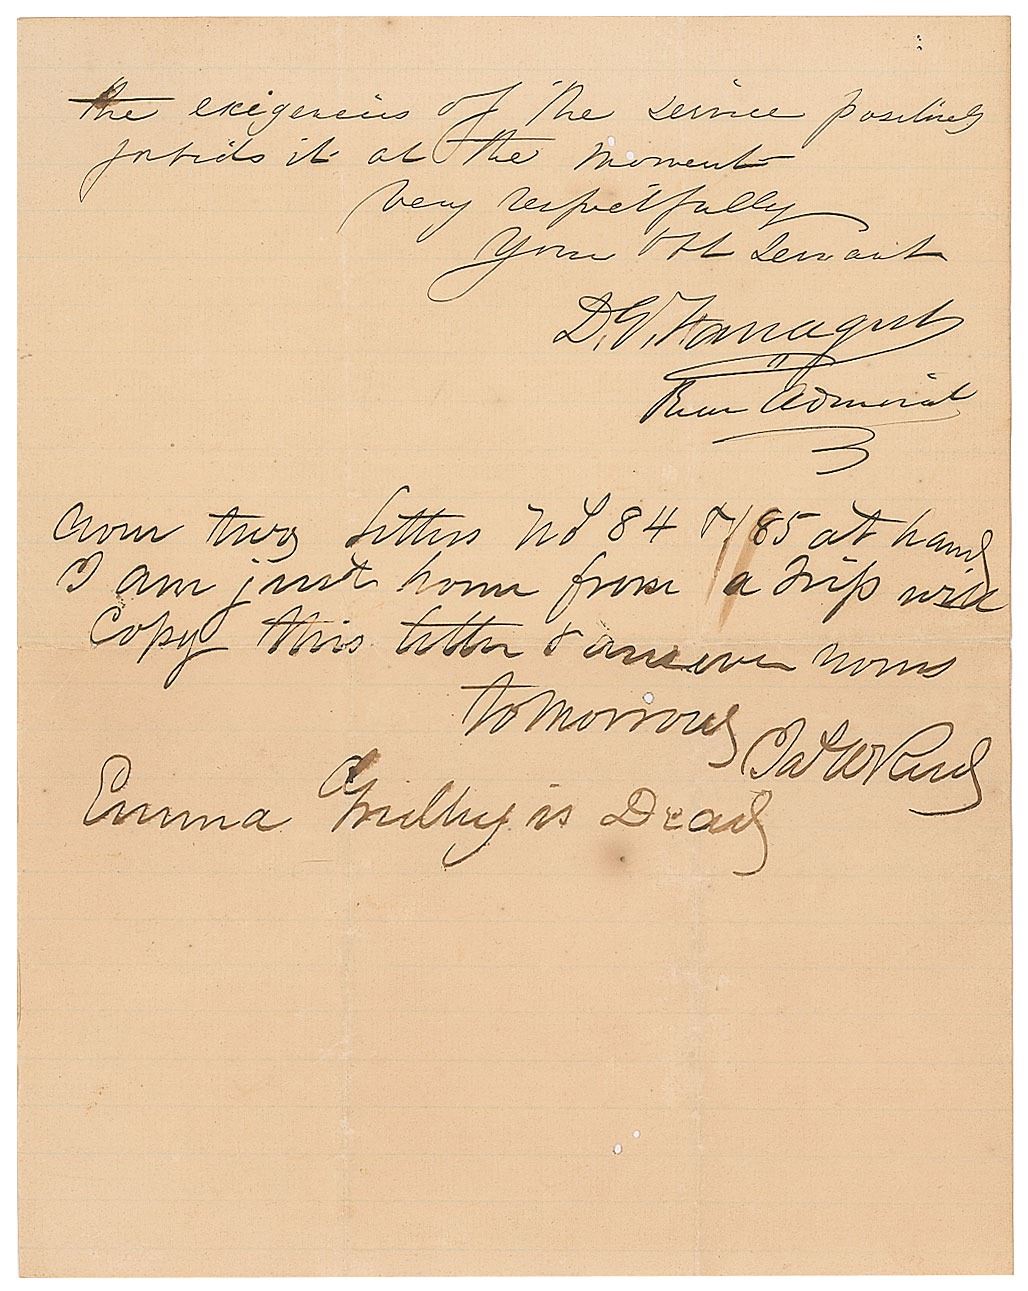 the exigencies of the service positively
forbids it at the moment
Very respectfully
Your Obt Servant
D. G. Farragut
Rear Admiral
Your two letters No 84 & 85 at hand
I am just home from a trip will
Copy this letter & answer yours
tomorrow
Emma is Dead